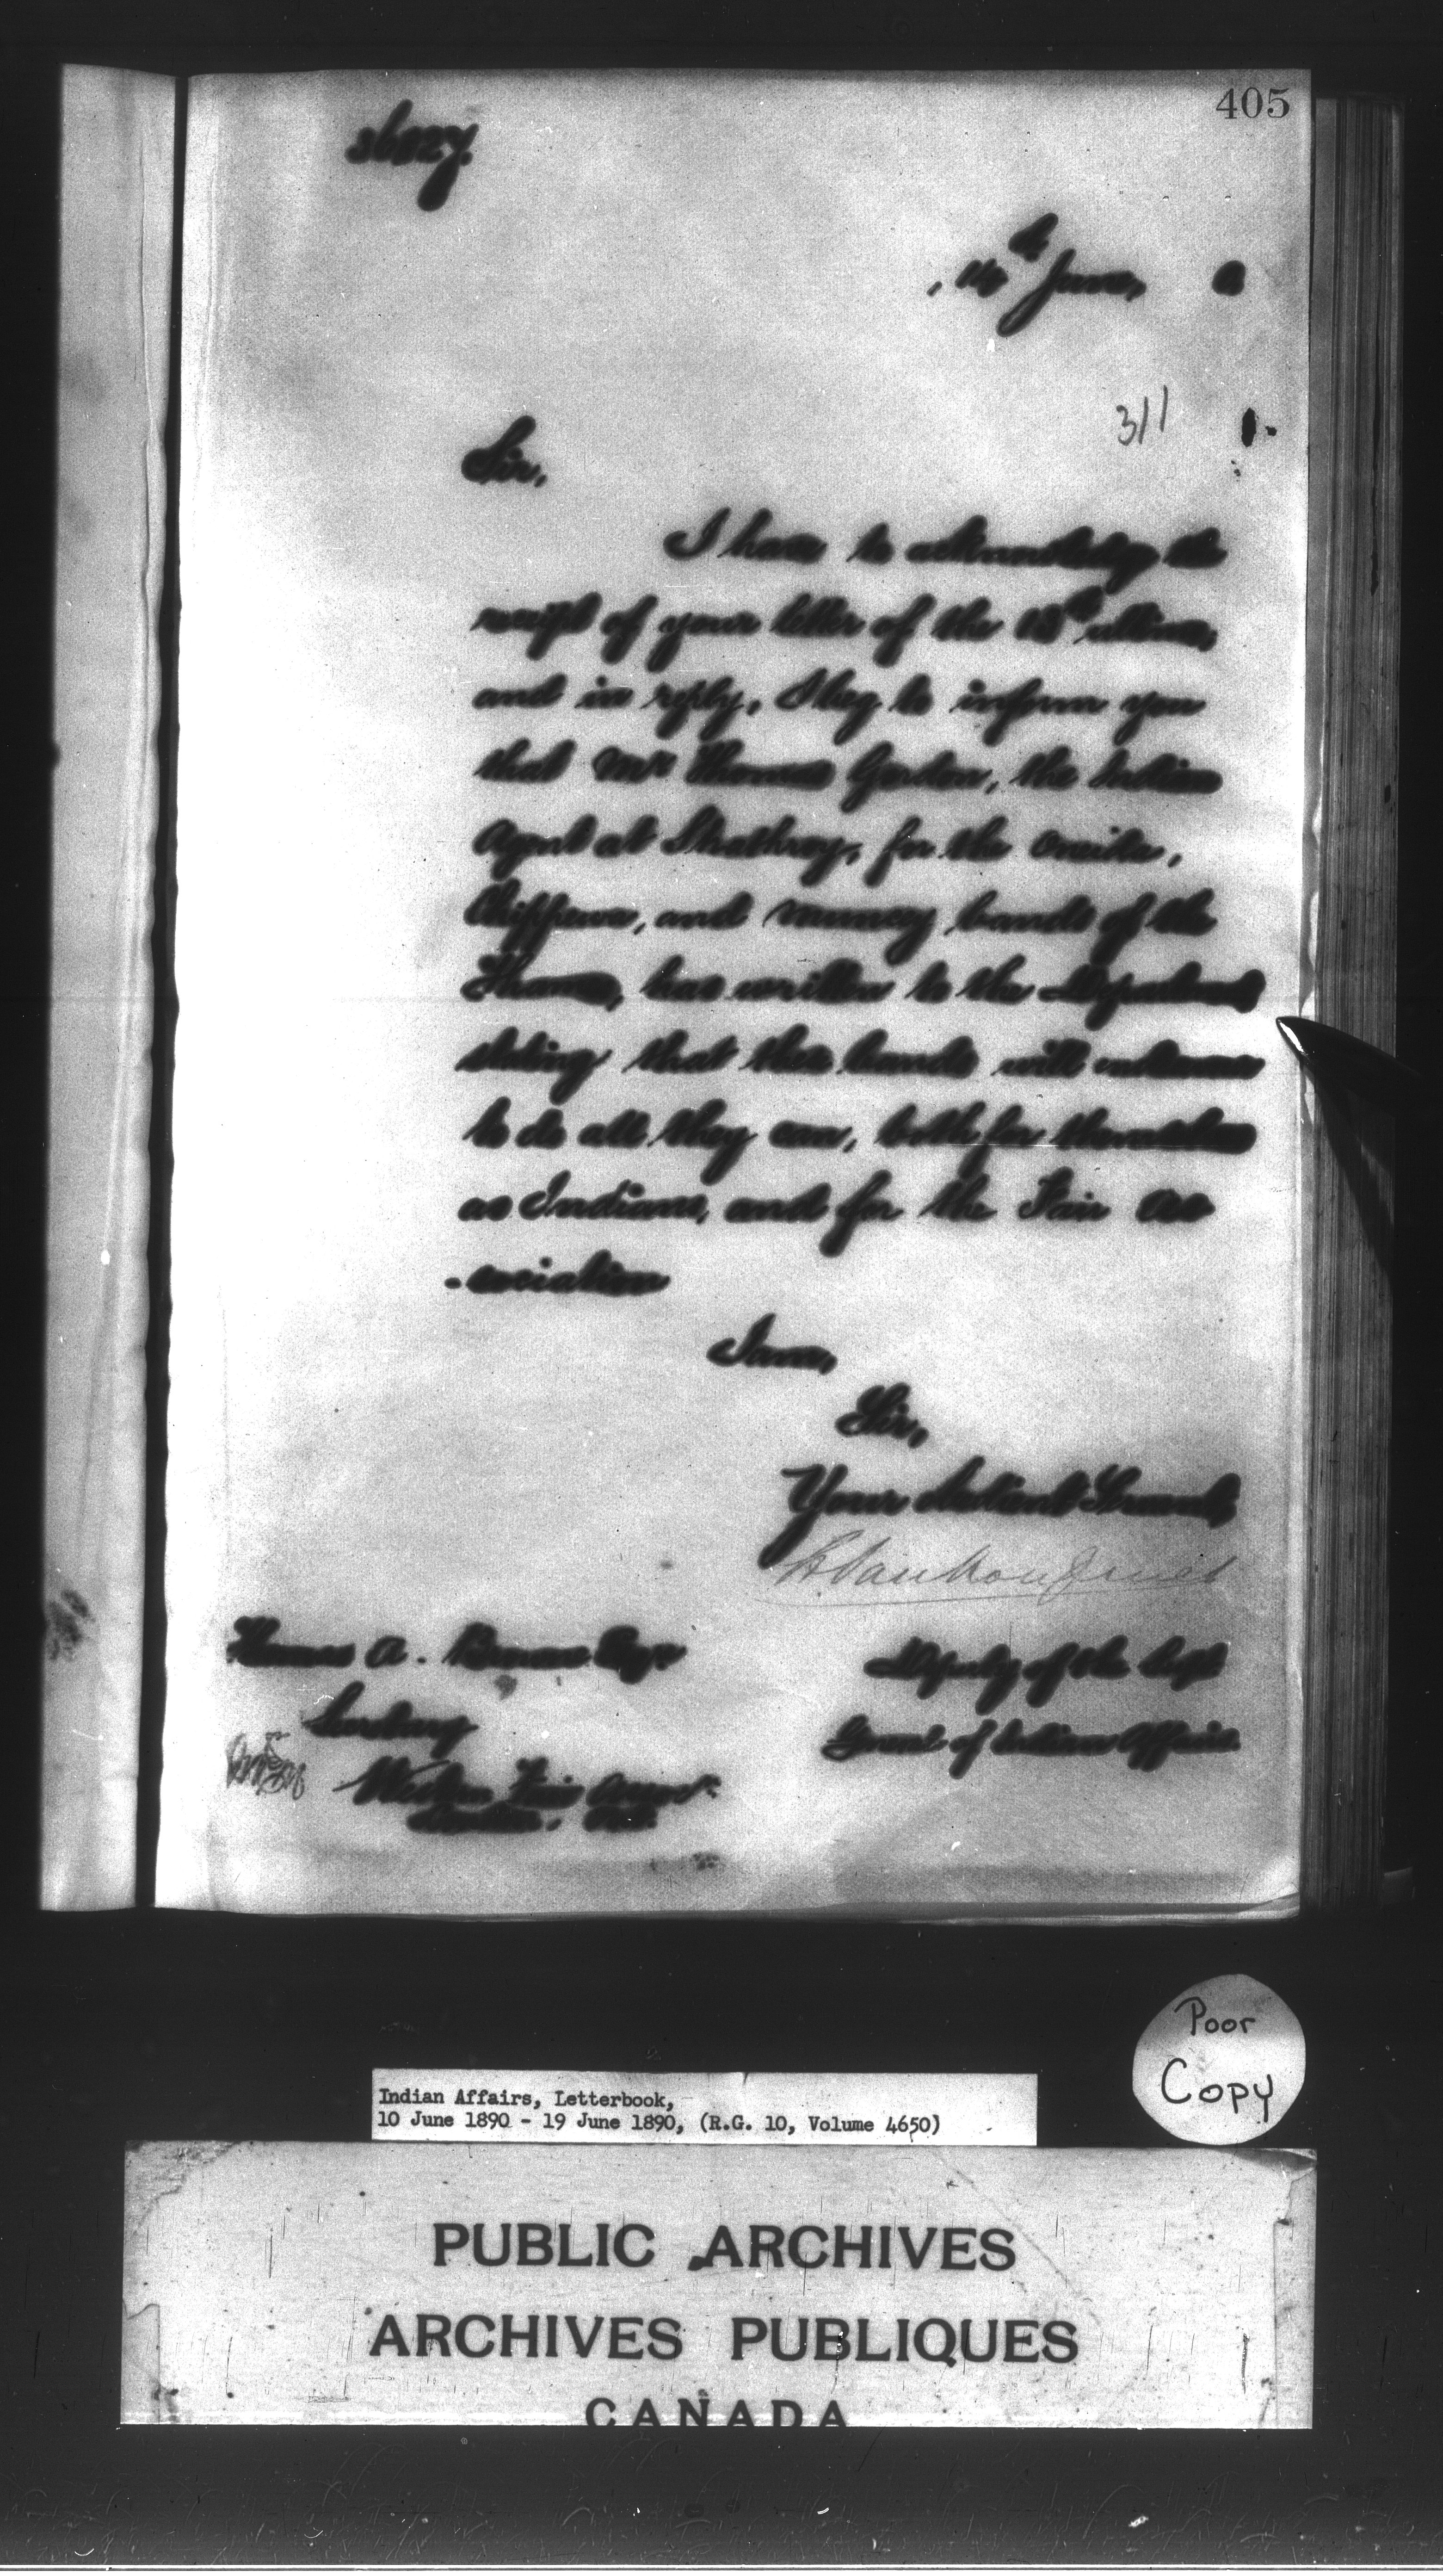 405
, 14th June, 0
311
Sir,
I have to acknowledge the
receipt of your letter of the ultimo,
and in reply, I beg to inform you
that Mr Thomas Gordon, the Indian
Agent at Strathroy, for the Oneida,
Chippewa, and Muncey bands of the
Thames, has written to the Department
stating that these bands will endeavour
to do all they can, both for themselves
as Indians, and for the Fair As
-sociation
I am,
Sir,
Your obedient Servant,
L. Vankoughnet
Thomas A. Browne Esqr
Deputy of the Supt
Secretary
General of Indian Affairs.
Western Fair Assocn
London, Ont.
Poor
Copy
Indian Affairs, Letterbook,
10 June 1890 - 19 June 1890, (R.G. 10, Volume 4650)
PUBLIC ARCHIVES
ARCHIVES PUBLIQUES
CANADA